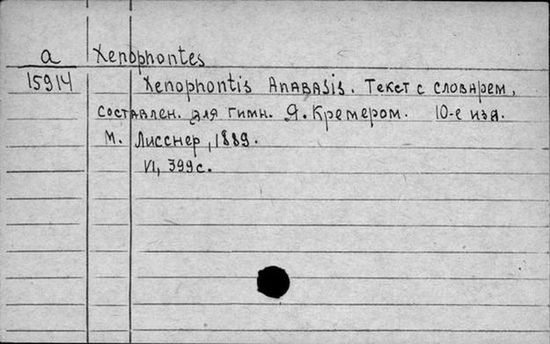 a Xenophontes
15914 Xenophontis Anabasis. Текст с словарем,
составлен. для гимн. Я. Кремером. 10-е изд.
М. Лисснер, 1889.
VI, 399 с.